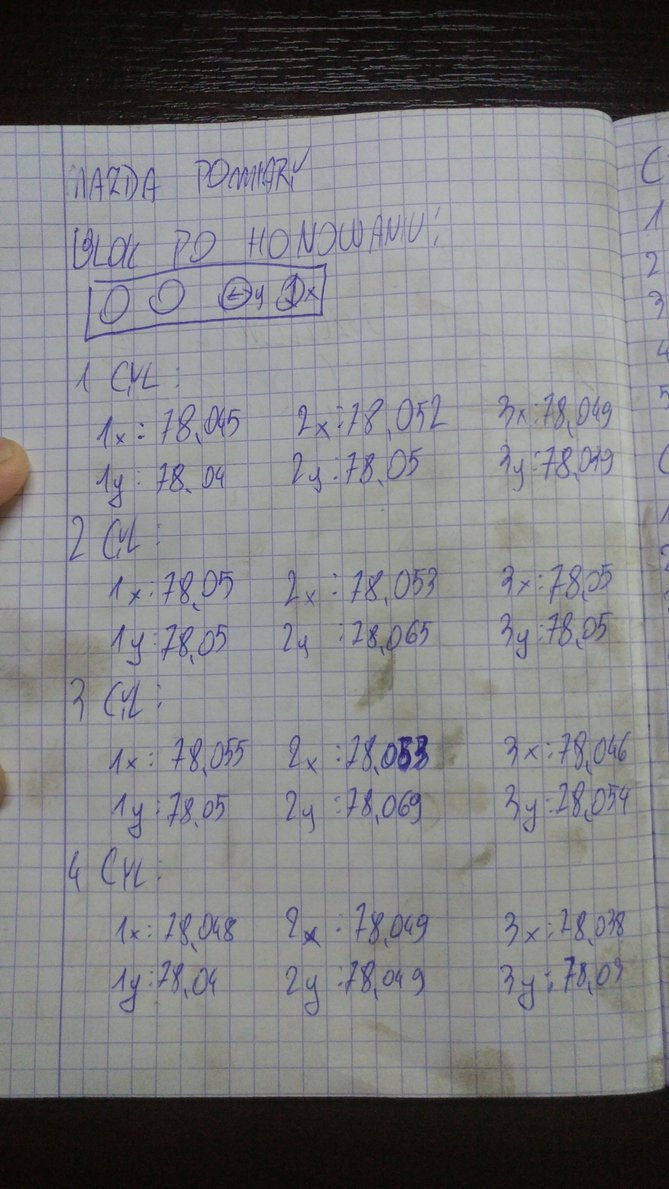 MAZDA POMIARY
BLOK PO HONOWANIU:
y x
1 CYL:
1x: 78,045 2x: 78,052 3x: 78,049
1y: 78.04 2y: 78.05 3y: 78,039
2 CYL:
1x: 78,05 2x: 78,053 3x: 78,05
1y: 78,05 2y: 78,065 3y: 78,05
3 CYL:
1x: 78,055 2x: 78,053 3x: 78,046
1y: 78,05 2y: 78,069 3y: 78,054
4 CYL:
1x: 78,048 2x: 78,049 3x: 78,038
1y: 78,04 2y: 78,049 3y: 78,03
C
1
2
3
4
5